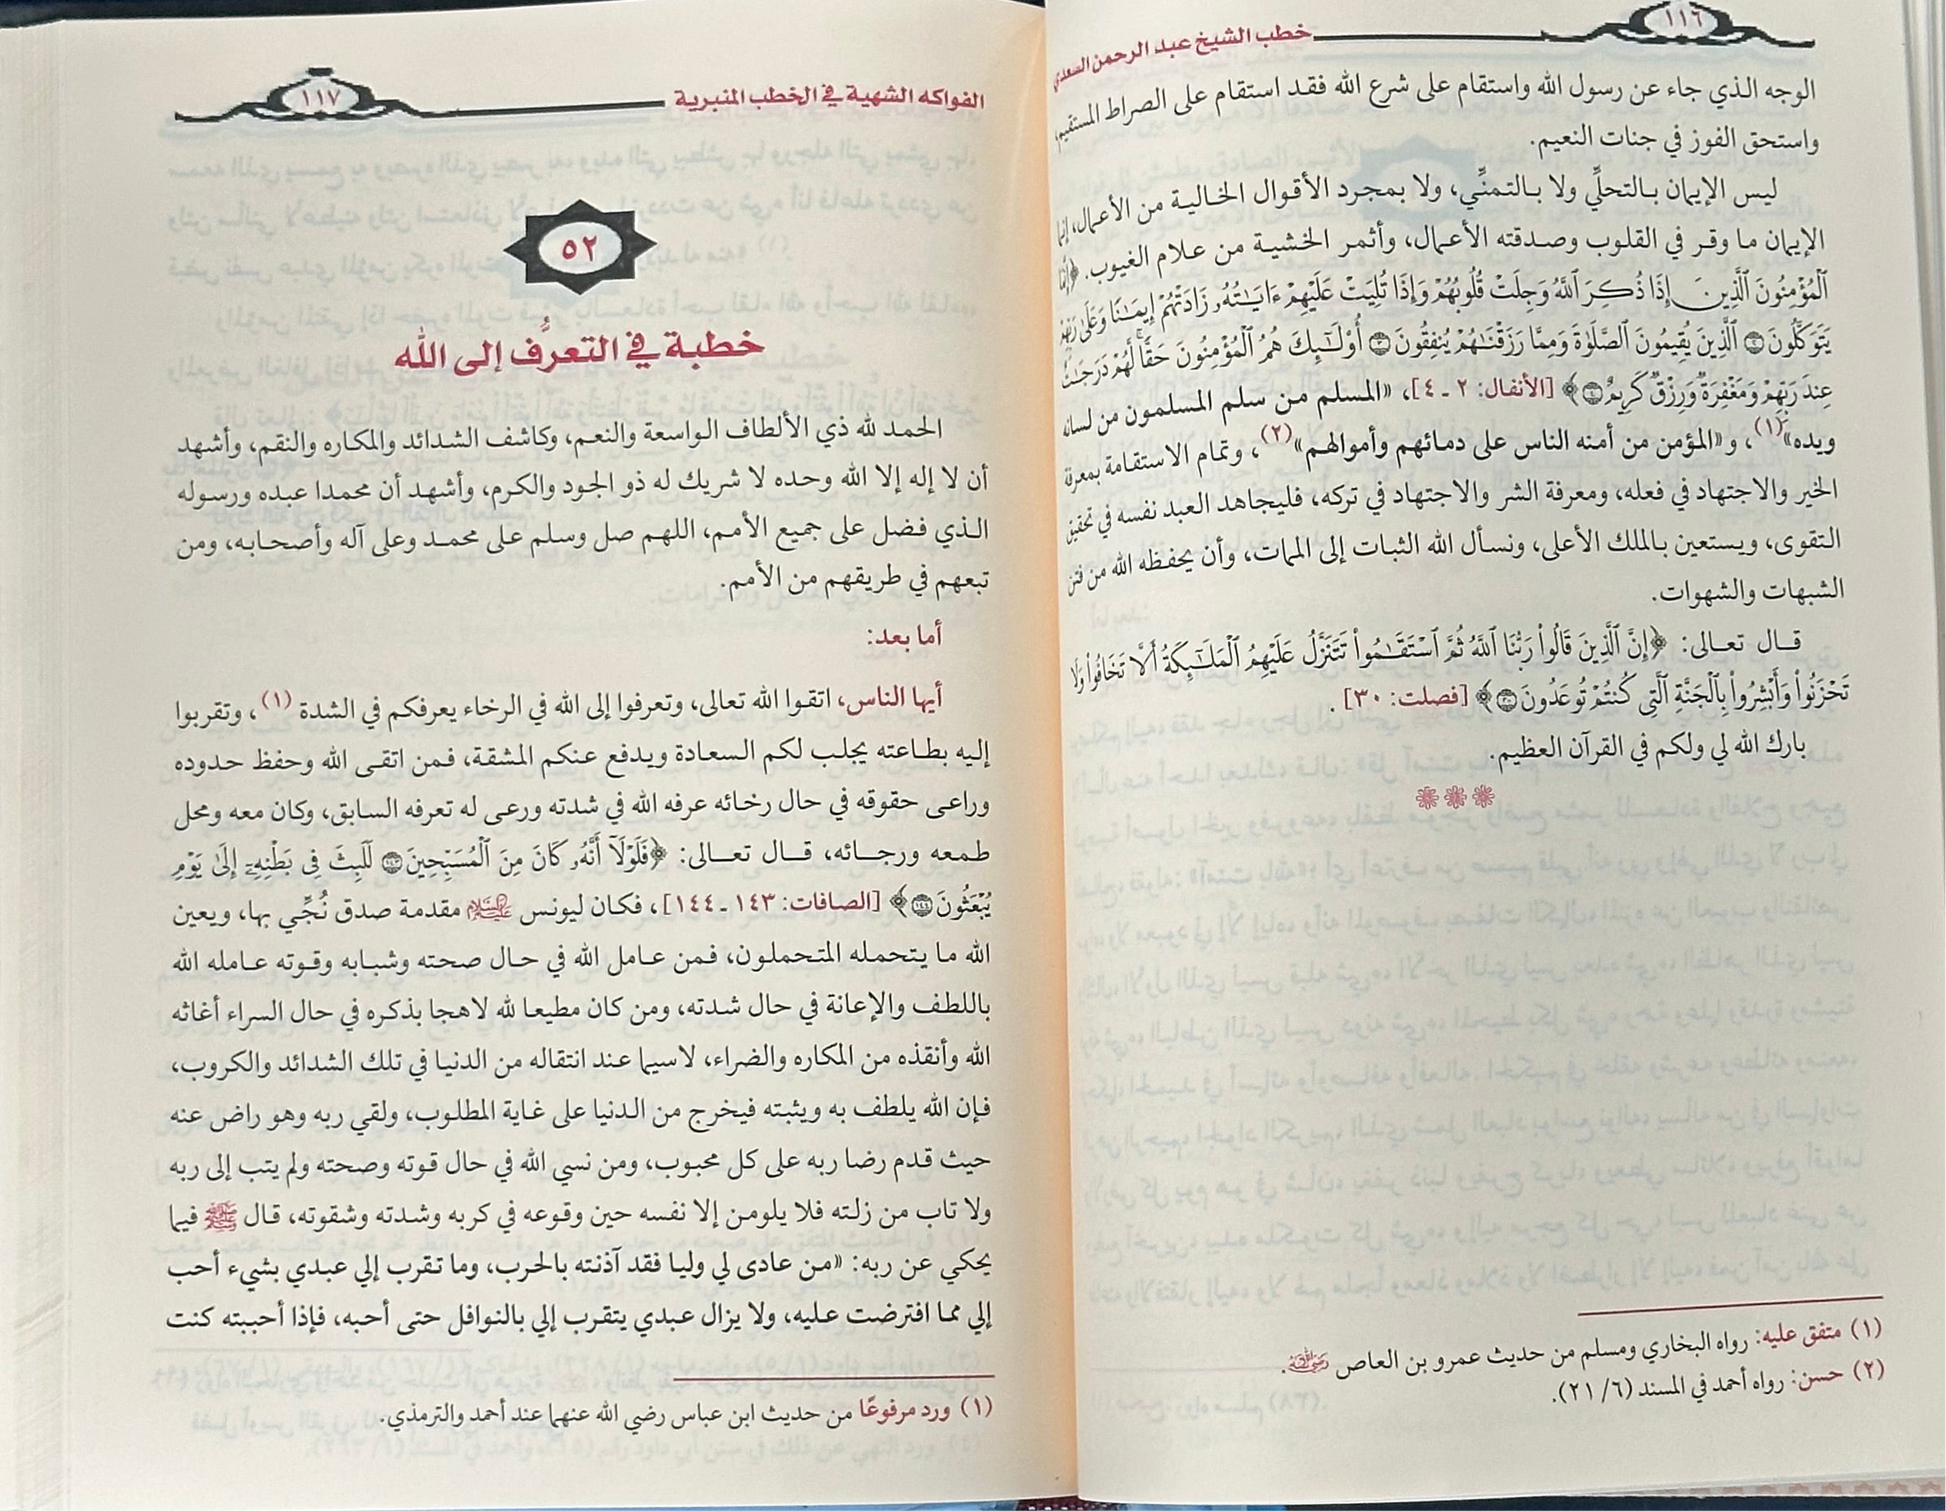 ١١٦
خطب الشيخ عبد الرحمن السعدي
الوجه الذي جاء عن رسول الله واستقام على شرع الله فقد استقام على الصراط المستقيم،
واستحق الفوز في جنات النعيم.
ليس الإيمان بالتحلِّي ولا بالتمنِّي، ولا بمجرد الأقوال الخالية من الأعمال، إنما
الإيمان ما وقر في القلوب وصدقته الأعمال، وأثمر الخشية من علام الغيوب. ﴿إِنَّمَا
ٱلْمُؤْمِنُونَ ٱلَّذِينَ إِذَا ذُكِرَ ٱللَّهُ وَجِلَتْ قُلُوبُهُمْ وَإِذَا تُلِيَتْ عَلَيْهِمْ ءَايَٰتُهُۥ زَادَتْهُمْ إِيمَٰنًا وَعَلَىٰ رَبِّهِمْ
يَتَوَكَّلُونَ ۝٢ ٱلَّذِينَ يُقِيمُونَ ٱلصَّلَوٰةَ وَمِمَّا رَزَقْنَٰهُمْ يُنفِقُونَ ۝٣ أُو۟لَٰٓئِكَ هُمُ ٱلْمُؤْمِنُونَ حَقًّا ۚ لَّهُمْ دَرَجَٰتٌ
عِندَ رَبِّهِمْ وَمَغْفِرَةٌ وَرِزْقٌ كَرِيمٌ ۝٤﴾ [الأنفال: ٢ ـ ٤]، «المسلم من سلم المسلمون من لسانه
ويده»(١)، و«المؤمن من أمنه الناس على دمائهم وأموالهم»(٢)، وتمام الاستقامة بمعرفة
الخير والاجتهاد في فعله، ومعرفة الشر والاجتهاد في تركه، فليجاهد العبد نفسه في تحقيق
التقوى، ويستعين بالملك الأعلى، ونسأل الله الثبات إلى الممات، وأن يحفظه الله من فتن
الشبهات والشهوات.
قال تعالى: ﴿إِنَّ ٱلَّذِينَ قَالُوا۟ رَبُّنَا ٱللَّهُ ثُمَّ ٱسْتَقَٰمُوا۟ تَتَنَزَّلُ عَلَيْهِمُ ٱلْمَلَٰٓئِكَةُ أَلَّا تَخَافُوا۟ وَلَا
تَحْزَنُوا۟ وَأَبْشِرُوا۟ بِٱلْجَنَّةِ ٱلَّتِى كُنتُمْ تُوعَدُونَ ۝٣٠﴾ [فصلت: ٣٠].
بارك الله لي ولكم في القرآن العظيم.
(١) متفق عليه: رواه البخاري ومسلم من حديث عمرو بن العاص رضي الله عنه.
(٢) حسن: رواه أحمد في المسند (٦/ ٢١).
الفواكه الشهية في الخطب المنبرية
١١٧
٥٢
خطبة في التعرُّف إلى الله
الحمد لله ذي الألطاف الواسعة والنعم، وكاشف الشدائد والمكاره والنقم، وأشهد
أن لا إله إلا الله وحده لا شريك له ذو الجود والكرم، وأشهد أن محمدا عبده ورسوله
الذي فضل على جميع الأمم، اللهم صل وسلم على محمد وعلى آله وأصحابه، ومن
تبعهم في طريقهم من الأمم.
أما بعد:
أيها الناس، اتقوا الله تعالى، وتعرفوا إلى الله في الرخاء يعرفكم في الشدة (١)، وتقربوا
إليه بطاعته يجلب لكم السعادة ويدفع عنكم المشقة، فمن اتقى الله وحفظ حدوده
وراعى حقوقه في حال رخائه عرفه الله في شدته ورعى له تعرفه السابق، وكان معه ومحل
طمعه ورجائه، قال تعالى: ﴿فَلَوْلَآ أَنَّهُۥ كَانَ مِنَ ٱلْمُسَبِّحِينَ ۝١٤٣ لَلَبِثَ فِى بَطْنِهِۦٓ إِلَىٰ يَوْمِ
يُبْعَثُونَ ۝١٤٤﴾ [الصافات: ١٤٣ ـ ١٤٤]، فكان ليونس عليه السلام مقدمة صدق نُجِّي بها، ويعين
الله ما يتحمله المتحملون، فمن عامل الله في حال صحته وشبابه وقوته عامله الله
باللطف والإعانة في حال شدته، ومن كان مطيعا لله لاهجا بذكره في حال السراء أغاثه
الله وأنقذه من المكاره والضراء، لاسيما عند انتقاله من الدنيا في تلك الشدائد والكروب،
فإن الله يلطف به ويثبته فيخرج من الدنيا على غاية المطلوب، ولقي ربه وهو راض عنه
حيث قدم رضا ربه على كل محبوب، ومن نسي الله في حال قوته وصحته ولم يتب إلى ربه
ولا تاب من زلته فلا يلومن إلا نفسه حين وقوعه في كربه وشدته وشقوته، قال ﷺ فيما
يحكي عن ربه: «من عادى لي وليا فقد آذنته بالحرب، وما تقرب إلي عبدي بشيء أحب
إلي مما افترضت عليه، ولا يزال عبدي يتقرب إلي بالنوافل حتى أحبه، فإذا أحببته كنت
(١) ورد مرفوعًا من حديث ابن عباس رضي الله عنهما عند أحمد والترمذي.